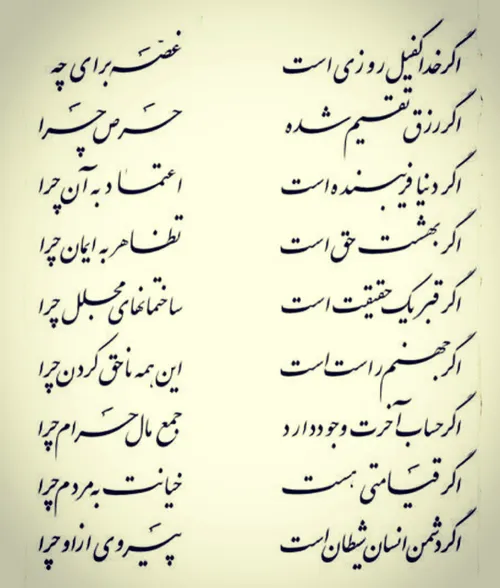 اگر خدا کفیل روزی است غصّه برای چه
اگر رزق تقسیم شده حرص چرا
اگر دنیا فریبنده است اعتماد به آن چرا
اگر بهشت حق است تظاهر به ایمان چرا
اگر قبر یک حقیقت است ساختمانهای مجلل چرا
اگر جهنم راست است این همه ناحق کردن چرا
اگر حساب آخرت وجود دارد جمع مال حرام چرا
اگر قیامتی هست خیانت به مردم چرا
اگر دشمن انسان شیطان است پیروی از او چرا